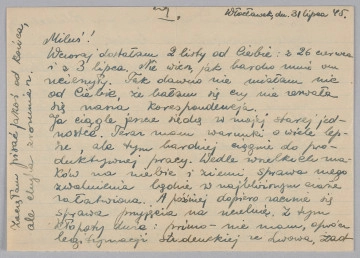 I.
Włocławek, dn. 31 lipca 45.
Miluś!!
Wczoraj dostałam 2 listy od Ciebie: z 26 czerwca
i z 3 lipca. Nie wiesz jak bardzo mnie one
ucieszyły. Tak dawno nie miałam nic
od Ciebie, że bałam się czy nie zerwała
się nasza korespondencja.
Ja ciągle jeszcze siedzę w mojej starej jed-
nostce. Teraz mam warunki o wiele lep-
sze, ale tym bardziej ciągnie do pro-
duktywnej pracy. Wedle wszelkich zna-
ków na niebie i ziemi, sprawa mego
zwolnienia będzie w najbliższym czasie
załatwiona. A później dopiero zacznie się
sprawa przyjęcia na uczelnię. Z tym
kłopoty duże: primo- nie mam, oprócz
legitymacji studenckiej ze Lwowa, żad-
Zaczęłam pisać jakoś od końca,
ale chyba zrozumiesz.